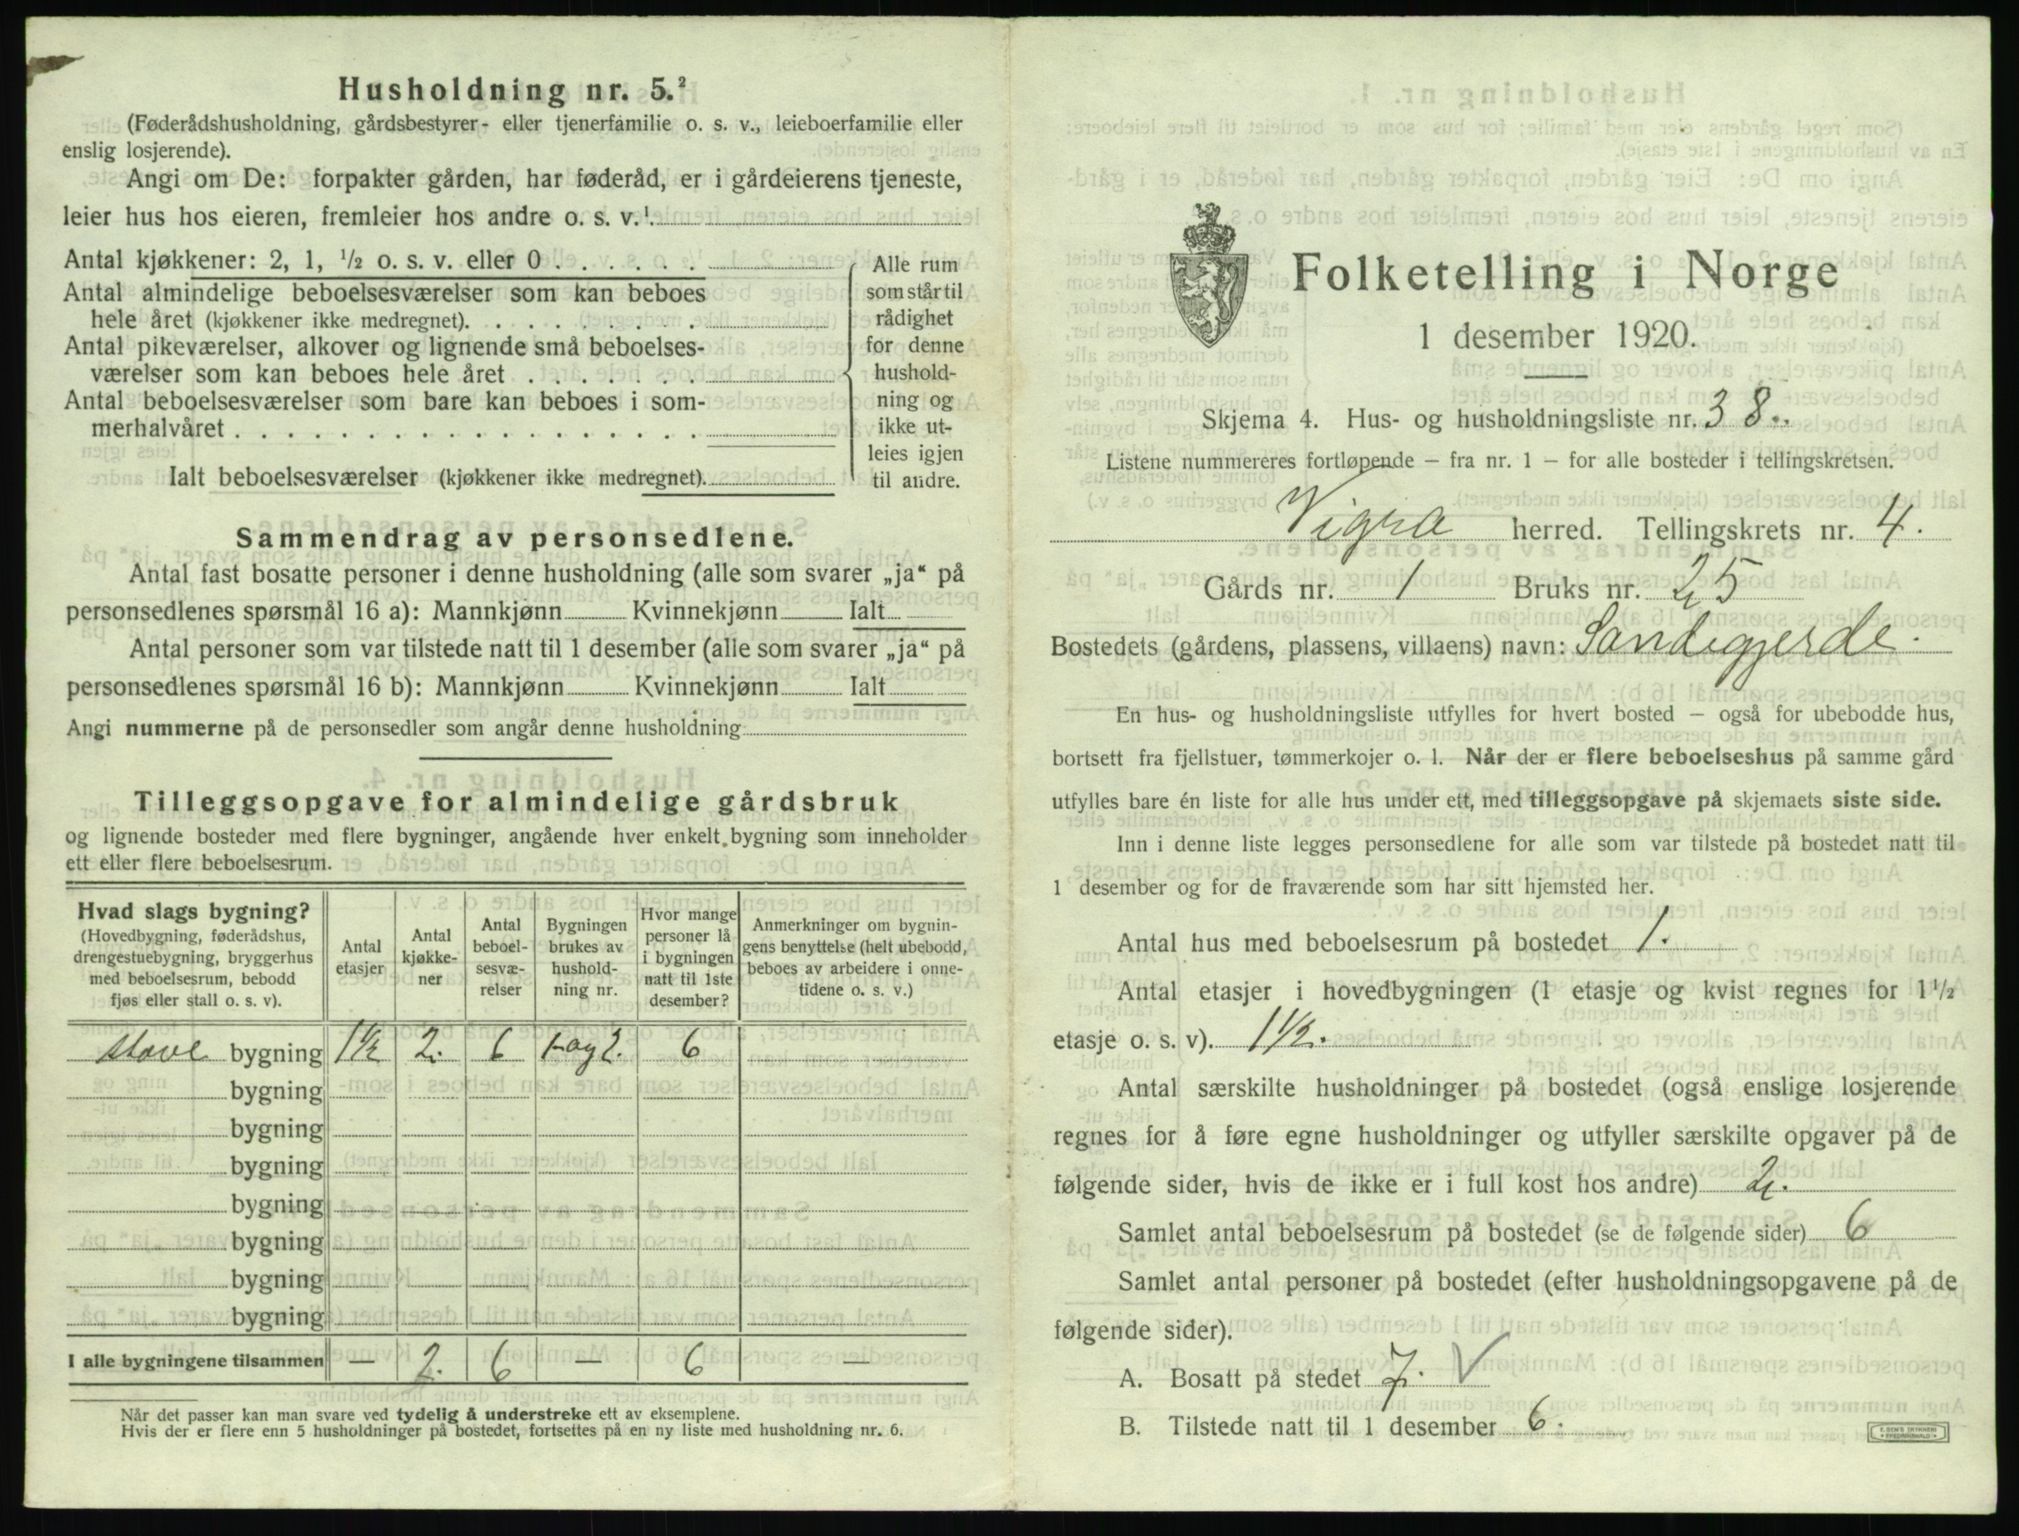 Husholdning nr. 5.²
(Føderådshusholdning, gårdsbestyrer- eller tjenerfamilie o. s. v., leieboerfamilie eller
enslig losjerende).
Angi om De: forpakter gården, har føderåd, er i gårdeierens tjeneste,
leier hus hos eieren, fremleier hos andre o. s. v.¹.
Antal kjøkkener: 2, 1, ½ o. s. v. eller 0 . . . . . .
Antal almindelige beboelsesværelser som kan beboes
hele året (kjøkkener ikke medregnet). . . . . . . . .
Antal pikeværelser, alkover og lignende små beboelses-
værelser som kan beboes hele året . . . . . . .
Antal beboelsesværelser som bare kan beboes i som-
merhalvåret . . . . . . . . . . . . . . . . . .
Ialt beboelsesværelser (kjøkkener ikke medregnet).
Alle rum
som står til
rådighet
for denne
hushold-
ning og
ikke ut-
leies igjen
til andre.
Sammendrag av personsedlene.
Antal fast bosatte personer i denne husholdning (alle som svarer „ja“ på
personsedlenes spørsmål 16 a): Mannkjønn Kvinnekjønn Ialt
Antal personer som var tilstede natt til 1 desember (alle som svarer „ja“ på
personsedlenes spørsmål 16 b): Mannkjønn Kvinnekjønn Ialt
Angi nummerne på de personsedler som angår denne husholdning
Tilleggsopgave for almindelige gårdsbruk
og lignende bosteder med flere bygninger, angående hver enkelt bygning som inneholder
ett eller flere beboelsesrum.
Hvad slags bygning?
(Hovedbygning, føderådshus,
drengestuebygning, bryggerhus
med beboelsesrum, bebodd
fjøs eller stall o. s. v).
Antal
etasjer
Antal
kjøkke-
ner
Antal
beboel-
sesvæ-
relser
Bygningen
brukes av
hushold-
ning nr.
Hvor mange
personer lå
i bygningen
natt til 1ste
desember?
Anmerkninger om bygnin-
gens benyttelse (helt ubebodd,
beboes av arbeidere i onne-
tidene o. s. v.)
stove bygning 1½ 2. 6 1 og 2. 6
bygning
bygning
bygning
bygning
bygning
bygning
bygning
I alle bygningene tilsammen — 2. 6 — 6 —
Når det passer kan man svare ved tydelig å understreke ett av eksemplene.
Hvis der er flere enn 5 husholdninger på bostedet, fortsettes på en ny liste med husholdning nr. 6.
Folketelling i Norge
1 desember 1920.
Skjema 4. Hus- og husholdningsliste nr. 38.
Listene nummereres fortløpende – fra nr. 1 – for alle bosteder i tellingskretsen.
Vigra herred. Tellingskrets nr. 4.
Gårds nr. 1 Bruks nr. 25
Bostedets (gårdens, plassens, villaens) navn: Sandegjerde.
En hus- og husholdningsliste utfylles for hvert bosted – også for ubebodde hus,
bortsett fra fjellstuer, tømmerkojer o. l. Når der er flere beboelseshus på samme gård
utfylles bare én liste for alle hus under ett, med tilleggsopgave på skjemaets siste side.
Inn i denne liste legges personsedlene for alle som var tilstede på bostedet natt til
1 desember og for de fraværende som har sitt hjemsted her.
Antal hus med beboelsesrum på bostedet 1.
Antal etasjer i hovedbygningen (1 etasje og kvist regnes for 1½
etasje o. s. v). 1½.
Antal særskilte husholdninger på bostedet (også enslige losjerende
regnes for å føre egne husholdninger og utfyller særskilte opgaver på de
følgende sider, hvis de ikke er i full kost hos andre) 2.
Samlet antal beboelsesrum på bostedet (se de følgende sider) 6
Samlet antal personer på bostedet (efter husholdningsopgavene på de
følgende sider).
A. Bosatt på stedet 7. V
B. Tilstede natt til 1 desember 6.